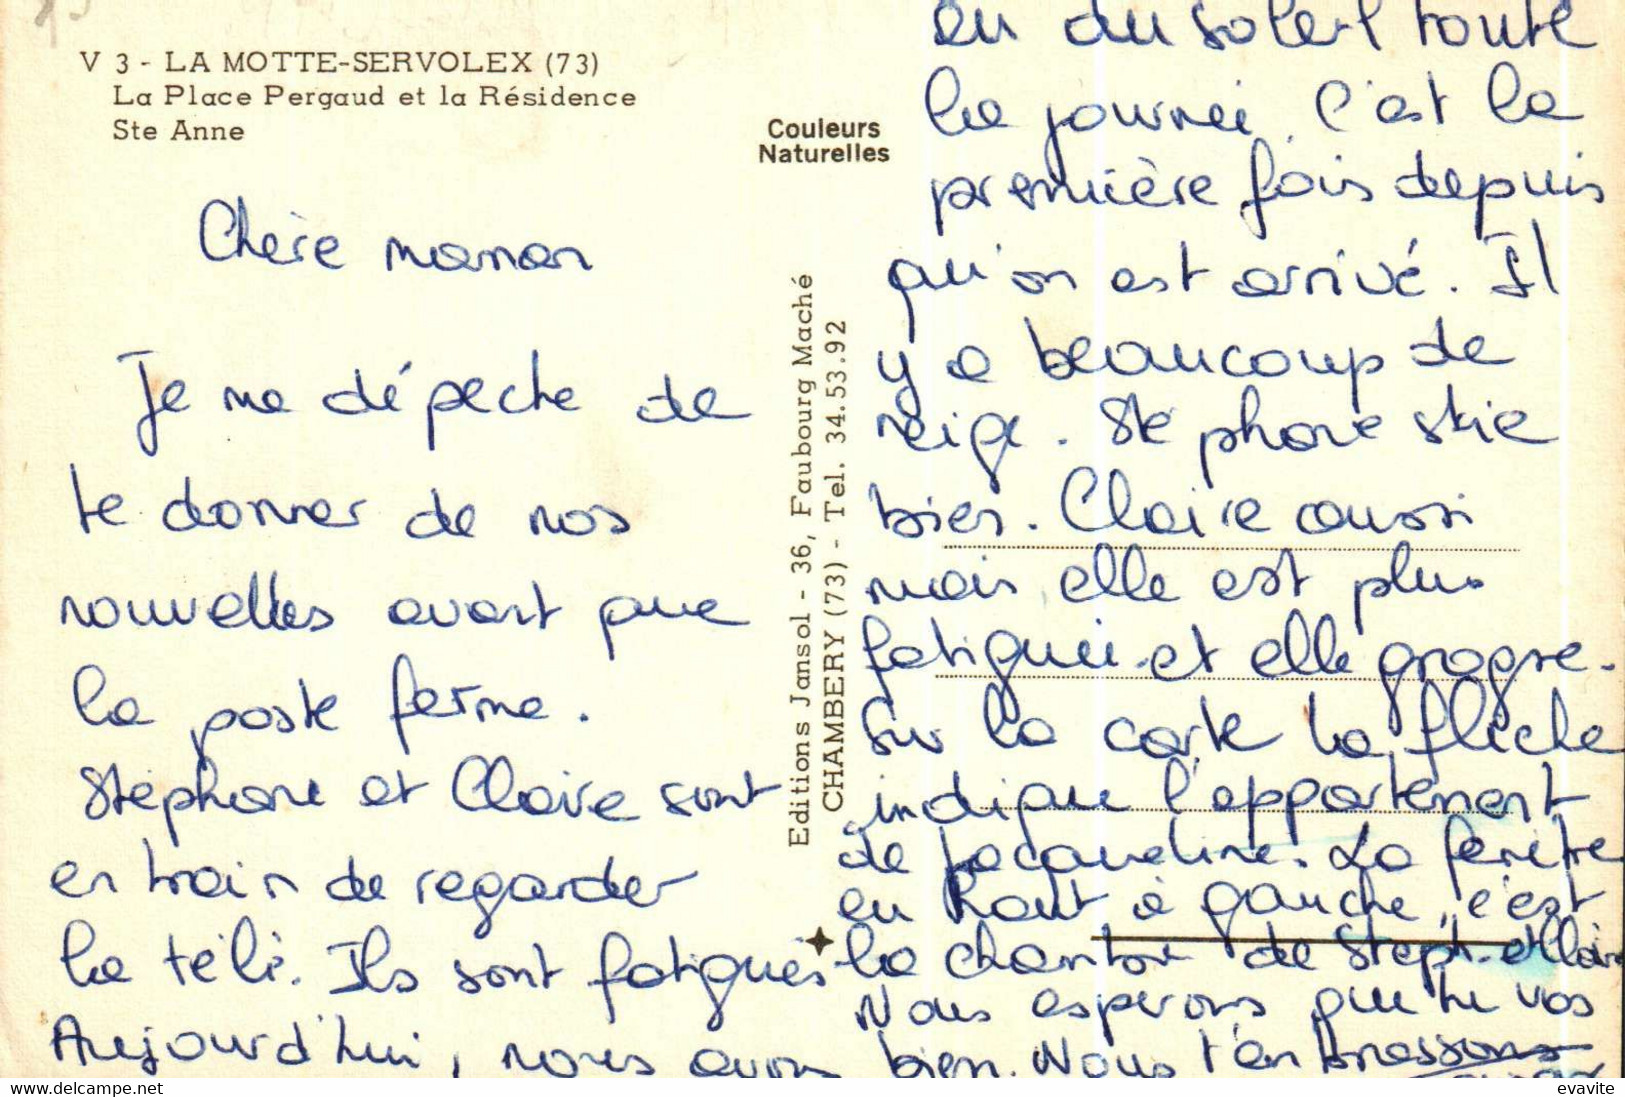 V 3 - LA MOTTE-SERVOLEX (73)
La Place Pergaud et la Résidence
Ste Anne
Couleurs
Naturelles
Editions Jansol - 36, Faubourg Maché
CHAMBERY (73) - Tel. 34.53.92
Chère maman
Je me dépeche de
te donner de nos
nouvelles avant que
la poste ferme.
Stéphane et Claire sont
en train de regarder
la télé. Ils sont fatigués
Aujourd'hui, nous avons
eu du soleil toute
la journée. C'est la
première fois depuis
qu'on est arrivé. Il
y a beaucoup de
neige. Stéphane skie
bien. Claire aussi
mais elle est plus
fatiguée et elle grogne.
Sur la carte la flèche
indique l'appartement
de Jacqueline. La fenêtre
en haut à gauche, c'est
la chambre de Steph. et Claire
Nous esperons que tu vas
bien. Nous t'embrassons
evavite